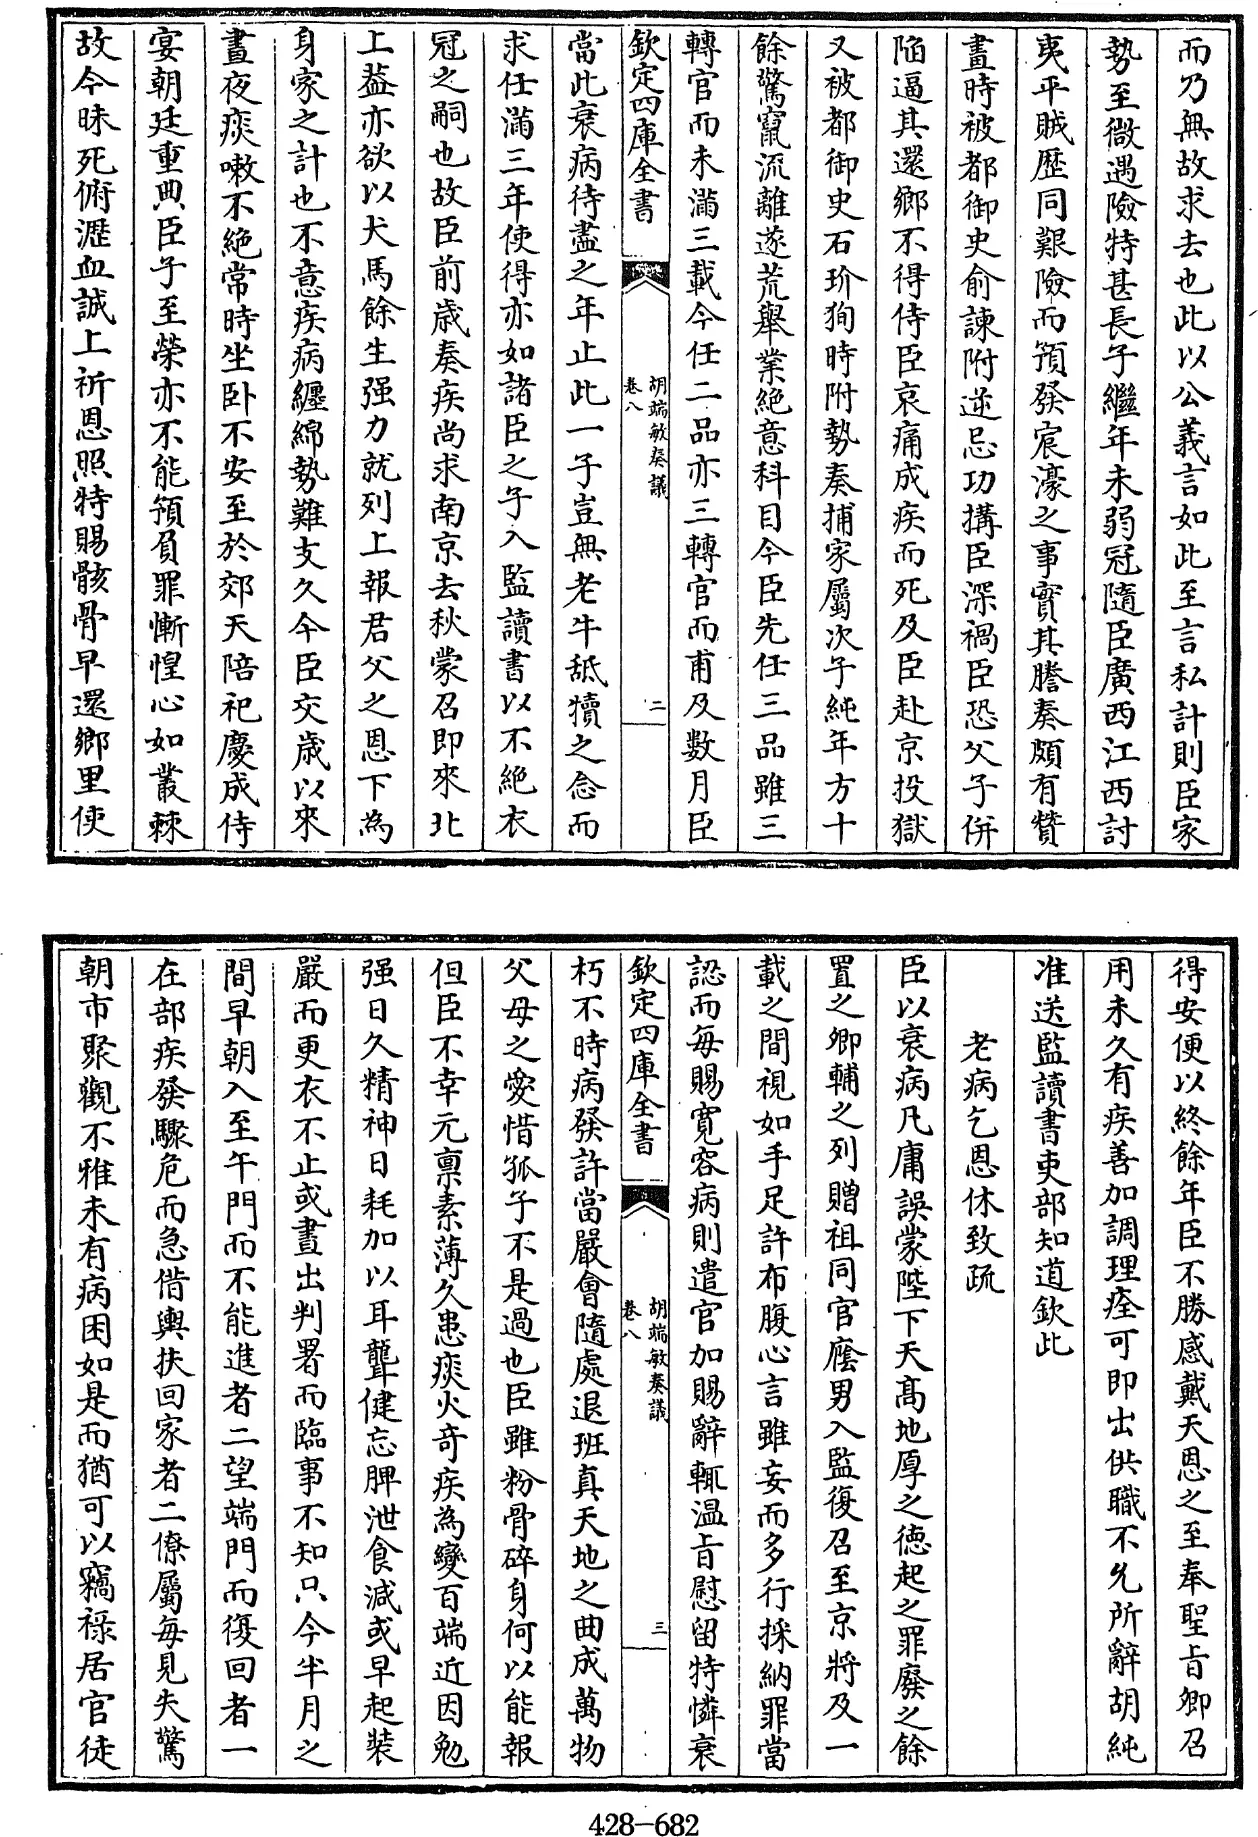 而乃無故求去也此以公義言如此至言私計則臣家
勢至微遇險特甚長子繼年未弱冠隨臣廣西江西討
夷平賊歴同艱險而預發宸濠之事實其謄奏頗有賛
畫時被都御史俞諫附逆忌功搆臣深禍臣恐父子併
陷逼其還鄉不得侍臣哀痛成疾而死及臣赴京投獄
又被都御史石玠狥時附勢奏捕家屬次子純年方十
餘驚竄流離遂荒舉業絶意科目今臣先任三品雖三
轉官而未滿三載今任二品亦三轉官而甫及數月臣
欽定四庫全書
胡端敏奏議
卷八
二
當此衰病待盡之年止此一子豈無老牛舐犢之念而
求任滿三年使得亦如諸臣之子入監讀書以不絶衣
冠之嗣也故臣前歲奏疾尚求南京去秋蒙召即來北
上葢亦欲以犬馬餘生强力就列上報君父之恩下為
身家之計也不意疾病纒綿勢難支久今臣交歲以來
晝夜痰嗽不絶常時坐卧不安至於郊天陪祀慶成侍
宴朝廷重典臣子至榮亦不能預負罪慚惶心如叢棘
故今昧死俯瀝血誠上祈恩照特賜骸骨早還鄉里使
得安便以終餘年臣不勝感戴天恩之至奉聖旨卿召
用未久有疾善加調理痊可即出供職不允所辭胡純
准送監讀書吏部知道欽此
老病乞恩休致疏
臣以衰病凡庸誤蒙陛下天髙地厚之徳起之罪廢之餘
置之卿輔之列贈祖同官廕男入監復召至京將及一
載之間視如手足許布腹心言雖妄而多行採納罪當
認而每賜寛容病則遣官加賜辭輒温旨慰留特憐衰
欽定四庫全書
胡端敏奏議
卷八
三
朽不時病發許當嚴會隨處退班真天地之曲成萬物
父母之愛惜孤子不是過也臣雖粉骨碎身何以能報
但臣不幸元稟素薄久患痰火竒疾為變百端近因勉
强日久精神日耗加以耳聾健忘脾泄食減或早起裝
嚴而更衣不止或晝出判署而臨事不知只今半月之
間早朝入至午門而不能進者二望端門而復回者一
在部疾發驟危而急借輿扶回家者二僚屬每見失驚
朝市聚觀不雅未有病困如是而猶可以竊禄居官徒
428-682